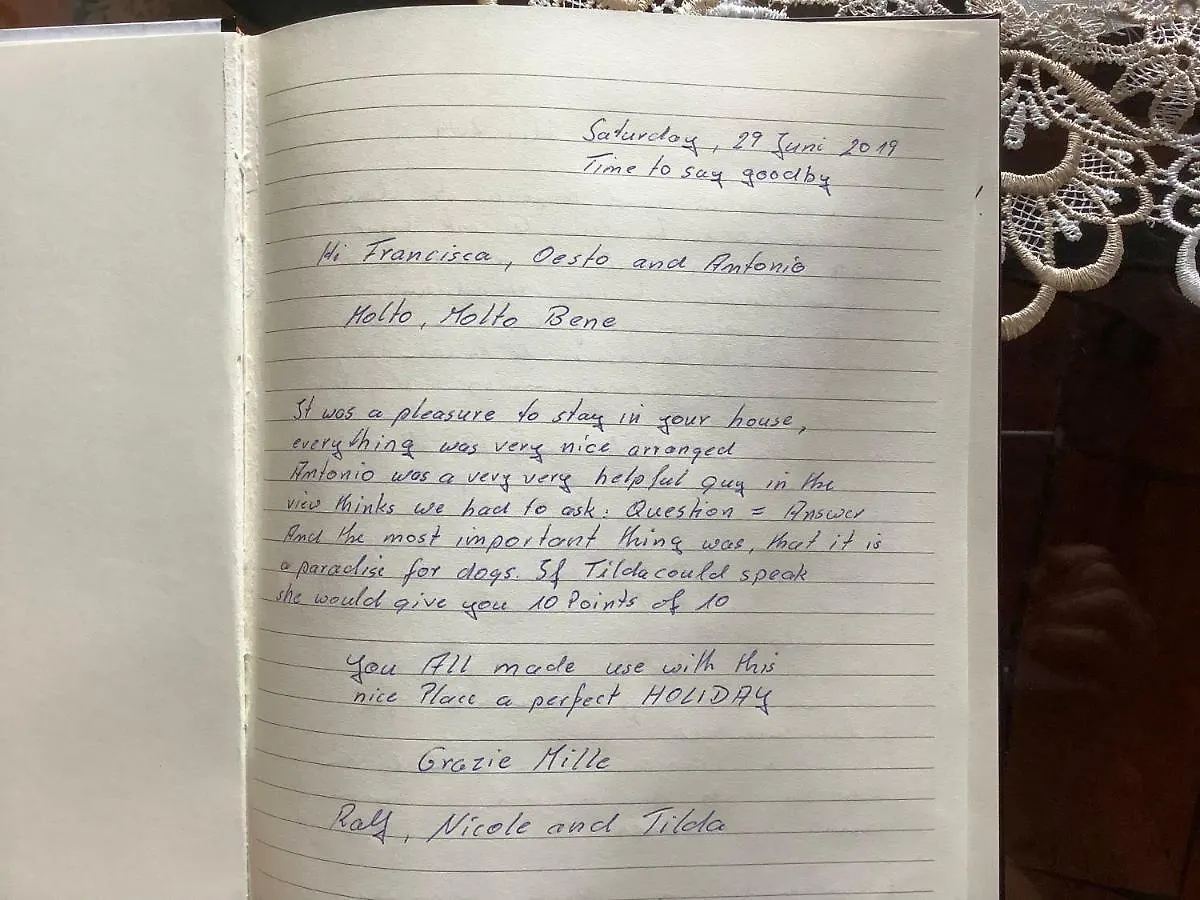 Saturday, 29 Juni 2019
Time to say goodby
Hi Francisca, Oesto and Antonio
Molto, Molto Bene
It was a pleasure to stay in your house,
everything was very nice arranged
Antonio was a very very helpful guy in the
view thinks we had to ask: Question = Answer
And the most important thing was, that it is
a paradise for dogs. If Tilda could speak
she would give you 10 Points of 10
you All made use with this
nice Place a perfect HOLIDAY
Grazie Mille
Ralf, Nicole and Tilda